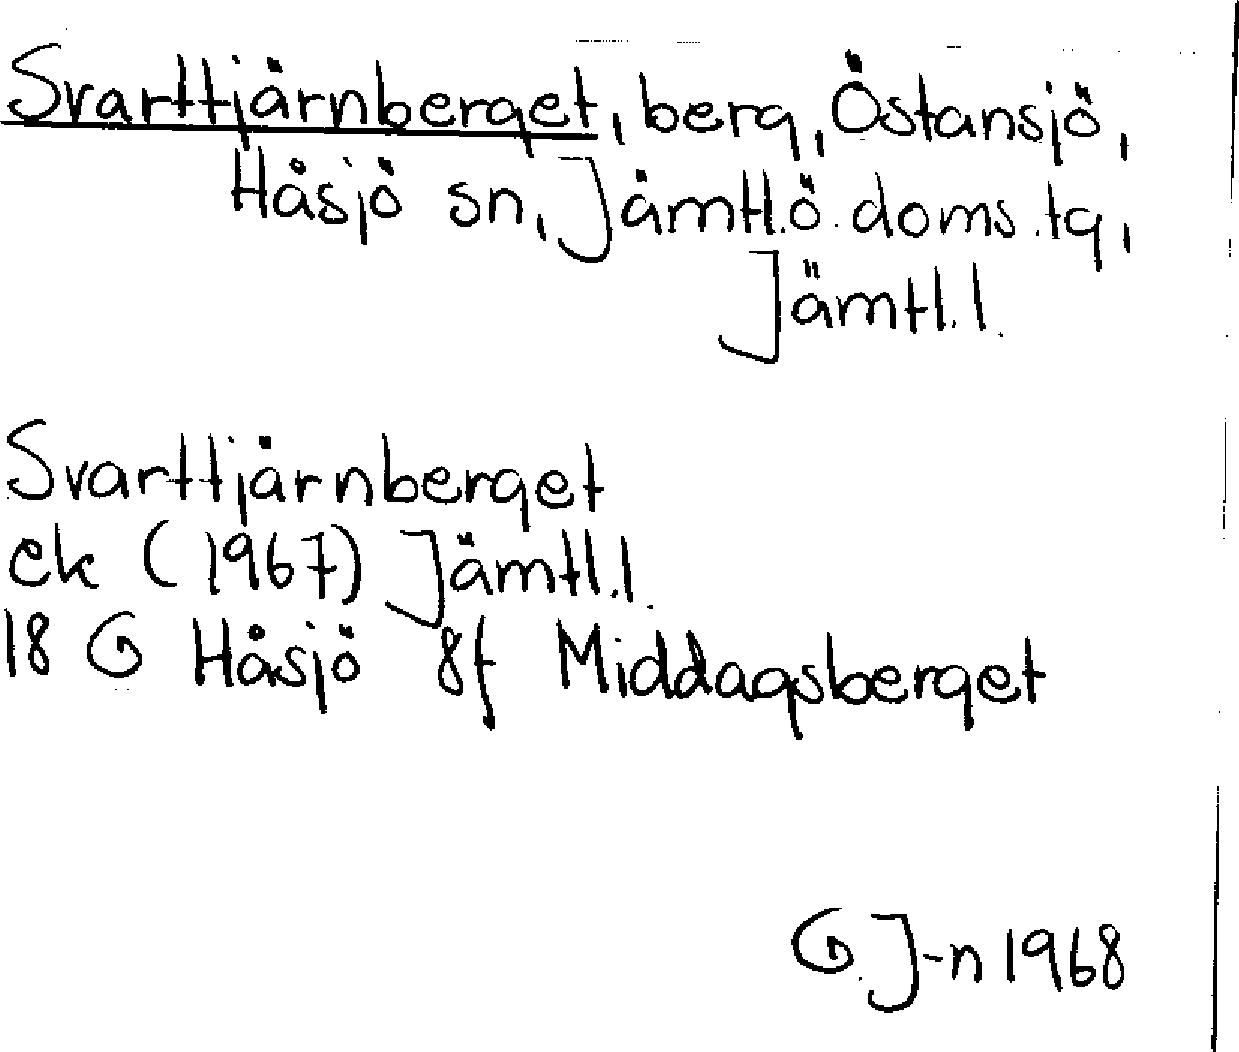 Svarttjärnberget, berg, Östansjö,
Håsjö sn, Jämtl.ö.doms.tg,
Jämtl.l.
Svarttjärnberget
ek (1967) Jämtl.l.
18 G Håsjö 8f Middagsberget
G.J-n 1968